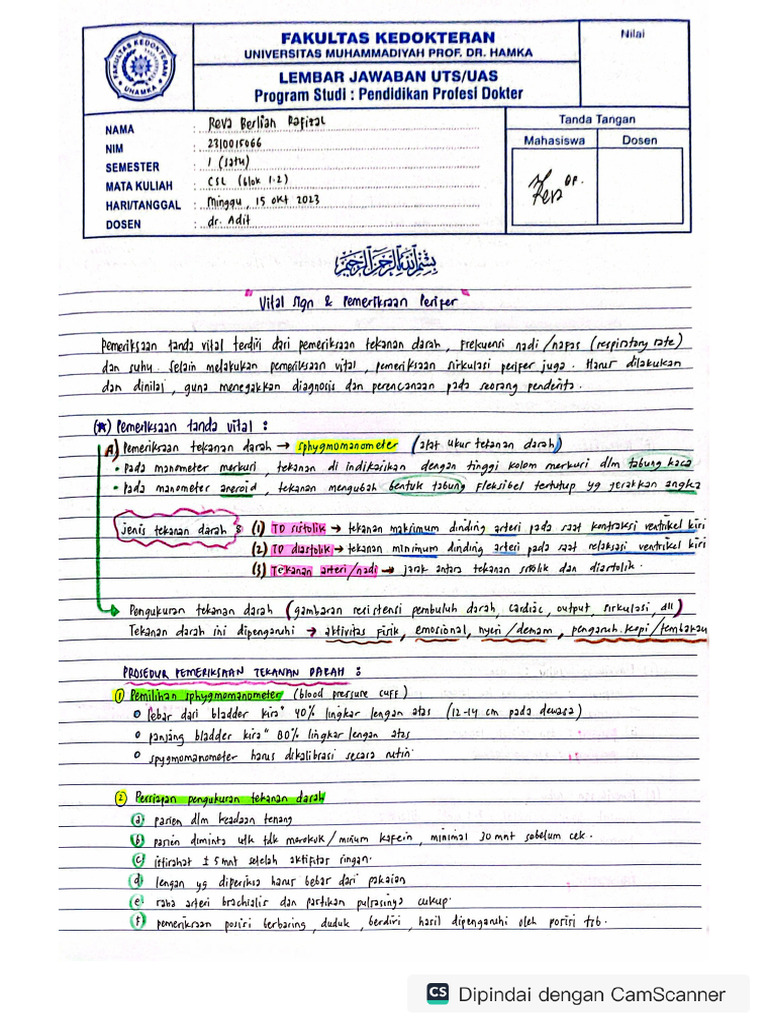 FAKULTAS KEDOKTERAN
UNIVERSITAS MUHAMMADIYAH PROF. DR. HAMKA
LEMBAR JAWABAN UTS/UAS
Program Studi : Pendidikan Profesi Dokter
Nilai
FAKULTAS KEDOKTERAN
UHAMKA
NAMA : Reva Berlian Rafizal
NIM : 2310015066
SEMESTER : 1 (satu)
MATA KULIAH : CSL (blok 1.2)
HARI/TANGGAL : Minggu, 15 Okt 2023
DOSEN : dr. Adit
Tanda Tangan
Mahasiswa Dosen
بسم الله الرحمن الرحيم
"Vital sign & Pemeriksaan Perifer"
Pemeriksaan tanda vital terdiri dari pemeriksaan tekanan darah, frekuensi nadi/napas (respiratory rate)
dan suhu. Selain melakukan pemeriksaan vital, pemeriksaan sirkulasi perifer juga. Harus dilakukan
dan dinilai, guna menegakkan diagnosis dan perencanaan pada seorang penderita.
(*) Pemeriksaan tanda vital :
A) Pemeriksaan tekanan darah → sphygmomanometer (alat ukur tekanan darah)
• Pada manometer merkuri, tekanan di indikasikan dengan tinggi kolom merkuri dlm tabung kaca
• Pada manometer aneroid, tekanan mengubah bentuk tabung fleksibel tertutup yg gerakkan angka
jenis tekanan darah : (1) TD sistolik → tekanan maksimum dinding arteri pada saat kontraksi ventrikel kiri
(2) TD diastolik → tekanan minimum dinding arteri pada saat relaksasi ventrikel kiri
(3) Tekanan arteri/nadi → jarak antara tekanan sistolik dan diastolik.
Pengukuran tekanan darah (gambaran resistensi pembuluh darah, cardiac, output, sirkulasi, dll)
Tekanan darah ini dipengaruhi → aktivitas fisik, emosional, nyeri/demam, pengaruh kopi/tembakau
PROSEDUR PEMERIKSAAN TEKANAN DARAH :
① Pemilihan sphygmomanometer (blood pressure cuff)
○ lebar dari bladder kira" 40% lingkar lengan atas (12-14 cm pada dewasa)
○ panjang bladder kira" 80% lingkar lengan atas
○ spygmomanometer harus dikalibrasi secara rutin.
② Persiapan pengukuran tekanan darah
(a) pasien dlm keadaan tenang
(b) pasien diminta utk tdk merokok/minum kafein, minimal 30 mnt sebelum cek.
(c) istirahat ± 5 mnt setelah aktifitas ringan.
(d) lengan yg diperiksa harus bebar dari pakaian
(e) raba arteri brachialis dan pastikan pulsasinya cukup.
(f) pemeriksaan posisi berbaring, duduk, berdiri, hasil dipengaruhi oleh posisi tsb.
CS Dipindai dengan CamScanner